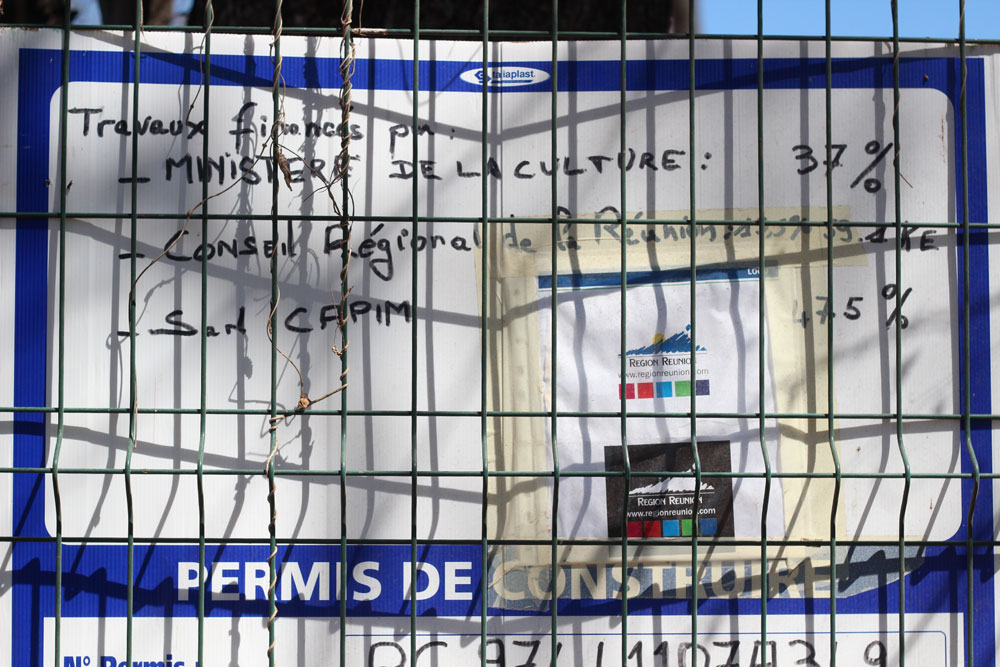 taliaplast.
Travaux financés par:
- MINISTERE DE LA CULTURE : 37 %
- CONSEIL Régional de la Réunion:
- Sarl CAPIM 47,5 %
REGION REUNION
www.regionreunion.com
REGION REUNION
www.regionreunion.com
PERMIS DE CONSTRUIRE
N° Permis :